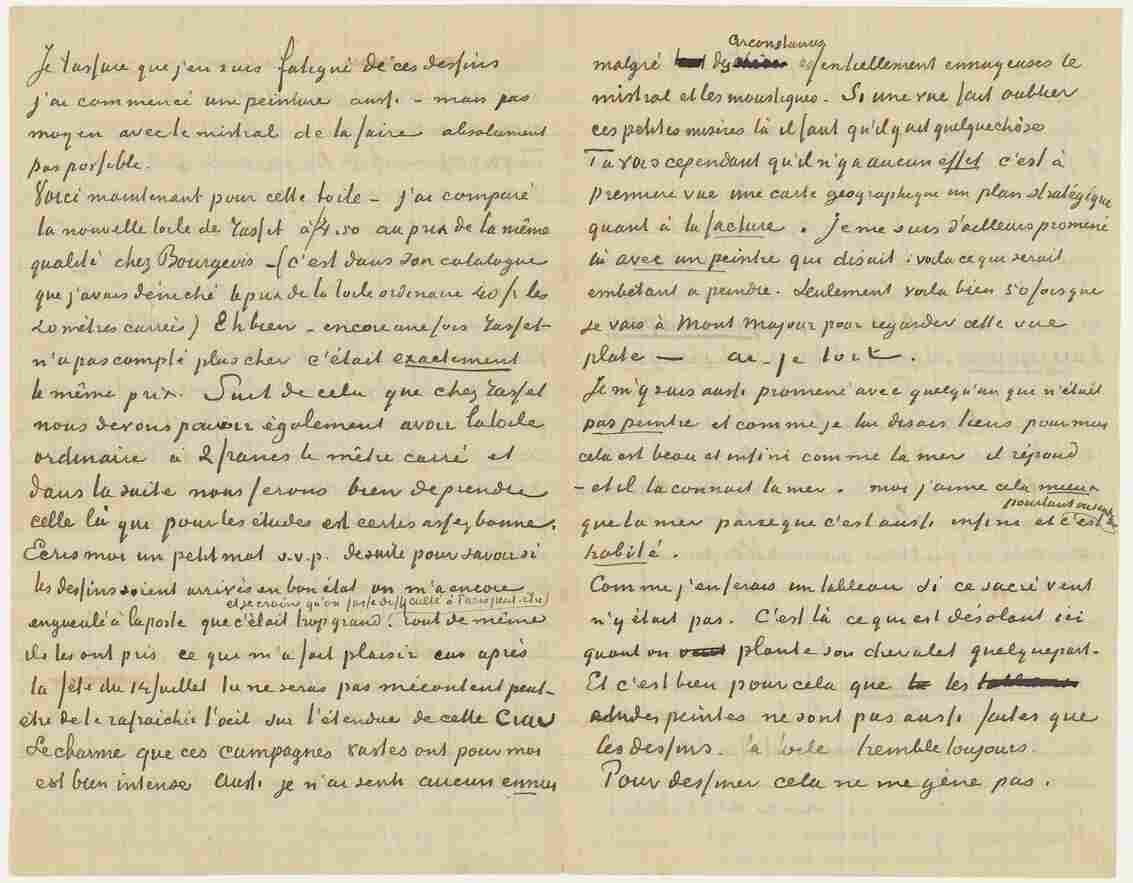 Je t'assure que j'en suis fatigué de ces dessins
j'ai commencé une peinture aussi – mais pas
moyen avec le mistral de la faire absolument
pas possible.
Voici maintenant pour cette toile – j'ai comparé
la nouvelle toile de Tasset à 4.50 au prix de la même
qualité chez Bourgeois – (c'est dans son catalogue
que j'avais déniché le prix de la toile ordinaire 40 fr les
20 mètres carrés) Eh bien – encore une fois Tasset
n'a pas compté plus cher c'était exactement
le même prix. Suit de cela que chez Tasset
nous devons pouvoir également avoir la toile
ordinaire à 2 francs le mètre carré et
dans la suite nous ferons bien de prendre
celle là qui pour les études est certes assez bonne.
Ecris moi un petit mot s.v.p. de suite pour savoir si
les dessins soient arrivés en bon état on m'a encore
et je crains qu'on fasse difficulté à Paris peut-être)
engueulé à la poste que c'était trop grand. tout de même
ils les ont pris ce qui m'a fait plaisir car après
la fête du 14 juillet tu ne seras pas mécontent peut-
être de te rafraichir l'oeil sur l'étendue de cette Crau
Le charme que ces campagnes vastes ont pour moi
est bien intense Aussi je n'ai senti aucun ennui
circonstances
malgré des essentiellement ennuyeuses le
mistral et les moustiques. Si une vue fait oublier
ces petites misères là il faut qu'il y ait quelque chose
Tu vois cependant qu'il n'y a aucun effet c'est à
première vue une carte géographique un plan stratégique
quant à la facture. Je me suis d'ailleurs promené
là avec un peintre qui disait: voilà ce qui serait
embêtant à peindre. Seulement voilà bien 50 fois que
je vais à Mont Majour pour regarder cette vue
plate — ai-je tort.
Je m'y suis aussi promené avec quelqu'un qui n'était
pas peintre et comme je lui disais tiens pour moi
cela est beau et infini comme la mer il répond
– et il la connait la mer. moi j'aime cela mieux
que la mer parce que c'est aussi infini et
pourtant on sent que c'est
habité.
Comme j'en ferais un tableau si ce sacré vent
n'y était pas. C'est là ce qui est désolant ici
quant on plante son chevalet quelque part–
Et c'est bien pour cela que les
etudes peintes ne sont pas aussi faites que
les dessins. la toile tremble toujours.
Pour dessiner cela ne me gène pas.